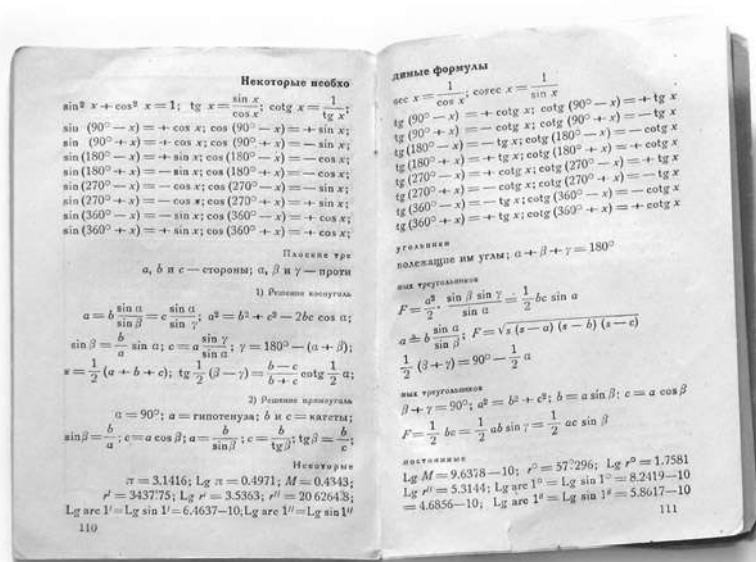 Некоторые необхо
sin² x + cos² x = 1; tg x = sin x / cos x; cotg x = 1 / tg x;
sin (90° − x) = + cos x; cos (90° − x) = + sin x;
sin (90° + x) = + cos x; cos (90° + x) = − sin x;
sin (180° − x) = + sin x; cos (180° − x) = − cos x;
sin (180° + x) = − sin x; cos (180° + x) = − cos x;
sin (270° − x) = − cos x; cos (270° − x) = − sin x;
sin (270° + x) = − cos x; cos (270° + x) = + sin x;
sin (360° − x) = − sin x; cos (360° − x) = + cos x;
sin (360° + x) = + sin x; cos (360° + x) = + cos x;
Плоские тре
a, b и c — стороны; α, β и γ — проти
1) Решение косоуголь
a = b sin α / sin β = c sin α / sin γ; a² = b² + c² − 2bc cos α;
sin β = b/a sin α; c = a sin γ / sin α; γ = 180° − (α + β);
s = 1/2 (a + b + c); tg 1/2 (β − γ) = b − c / b + c cotg 1/2 α;
2) Решение прямоуголь
α = 90°; a = гипотенуза; b и c = катеты;
sin β = b/a; c = a cos β; a = b / sin β; c = b / tg β; tg β = b/c;
Некоторые
π = 3.1416; Lg π = 0.4971; M = 0.4343;
r′ = 3437.75; Lg r′ = 3.5363; r″ = 206264.8;
Lg arc 1′ = Lg sin 1′ = 6.4637−10; Lg arc 1″ = Lg sin 1″
110
димые формулы
sec x = 1 / cos x; cosec x = 1 / sin x
tg (90° − x) = + cotg x; cotg (90° − x) = + tg x
tg (90° + x) = − cotg x; cotg (90° + x) = − tg x
tg (180° − x) = − tg x; cotg (180° − x) = − cotg x
tg (180° + x) = + tg x; cotg (180° + x) = + cotg x
tg (270° − x) = + cotg x; cotg (270° − x) = + tg x
tg (270° + x) = − cotg x; cotg (270° + x) = − tg x
tg (360° − x) = − tg x; cotg (360° − x) = − cotg x
tg (360° + x) = + tg x; cotg (360° + x) = + cotg x
угольники
полежащие им углы; α + β + γ = 180°
ных треугольников
F = a²/2 · sin β sin γ / sin α = 1/2 bc sin α
a = b sin α / sin β; F = √s (s − a) (s − b) (s − c)
1/2 (β + γ) = 90° − 1/2 α
ных треугольников
β + γ = 90°; a² = b² + c²; b = a sin β; c = a cos β
F = 1/2 bc = 1/2 ab sin γ = 1/2 ac sin β
постоянные
Lg M = 9.6378−10; r° = 57°.296; Lg r° = 1.7581
Lg r″ = 5.3144; Lg arc 1° = Lg sin 1° = 8.2419−10
= 4.6856−10; Lg arc 1″ = Lg sin 1″ = 5.8617−10
111